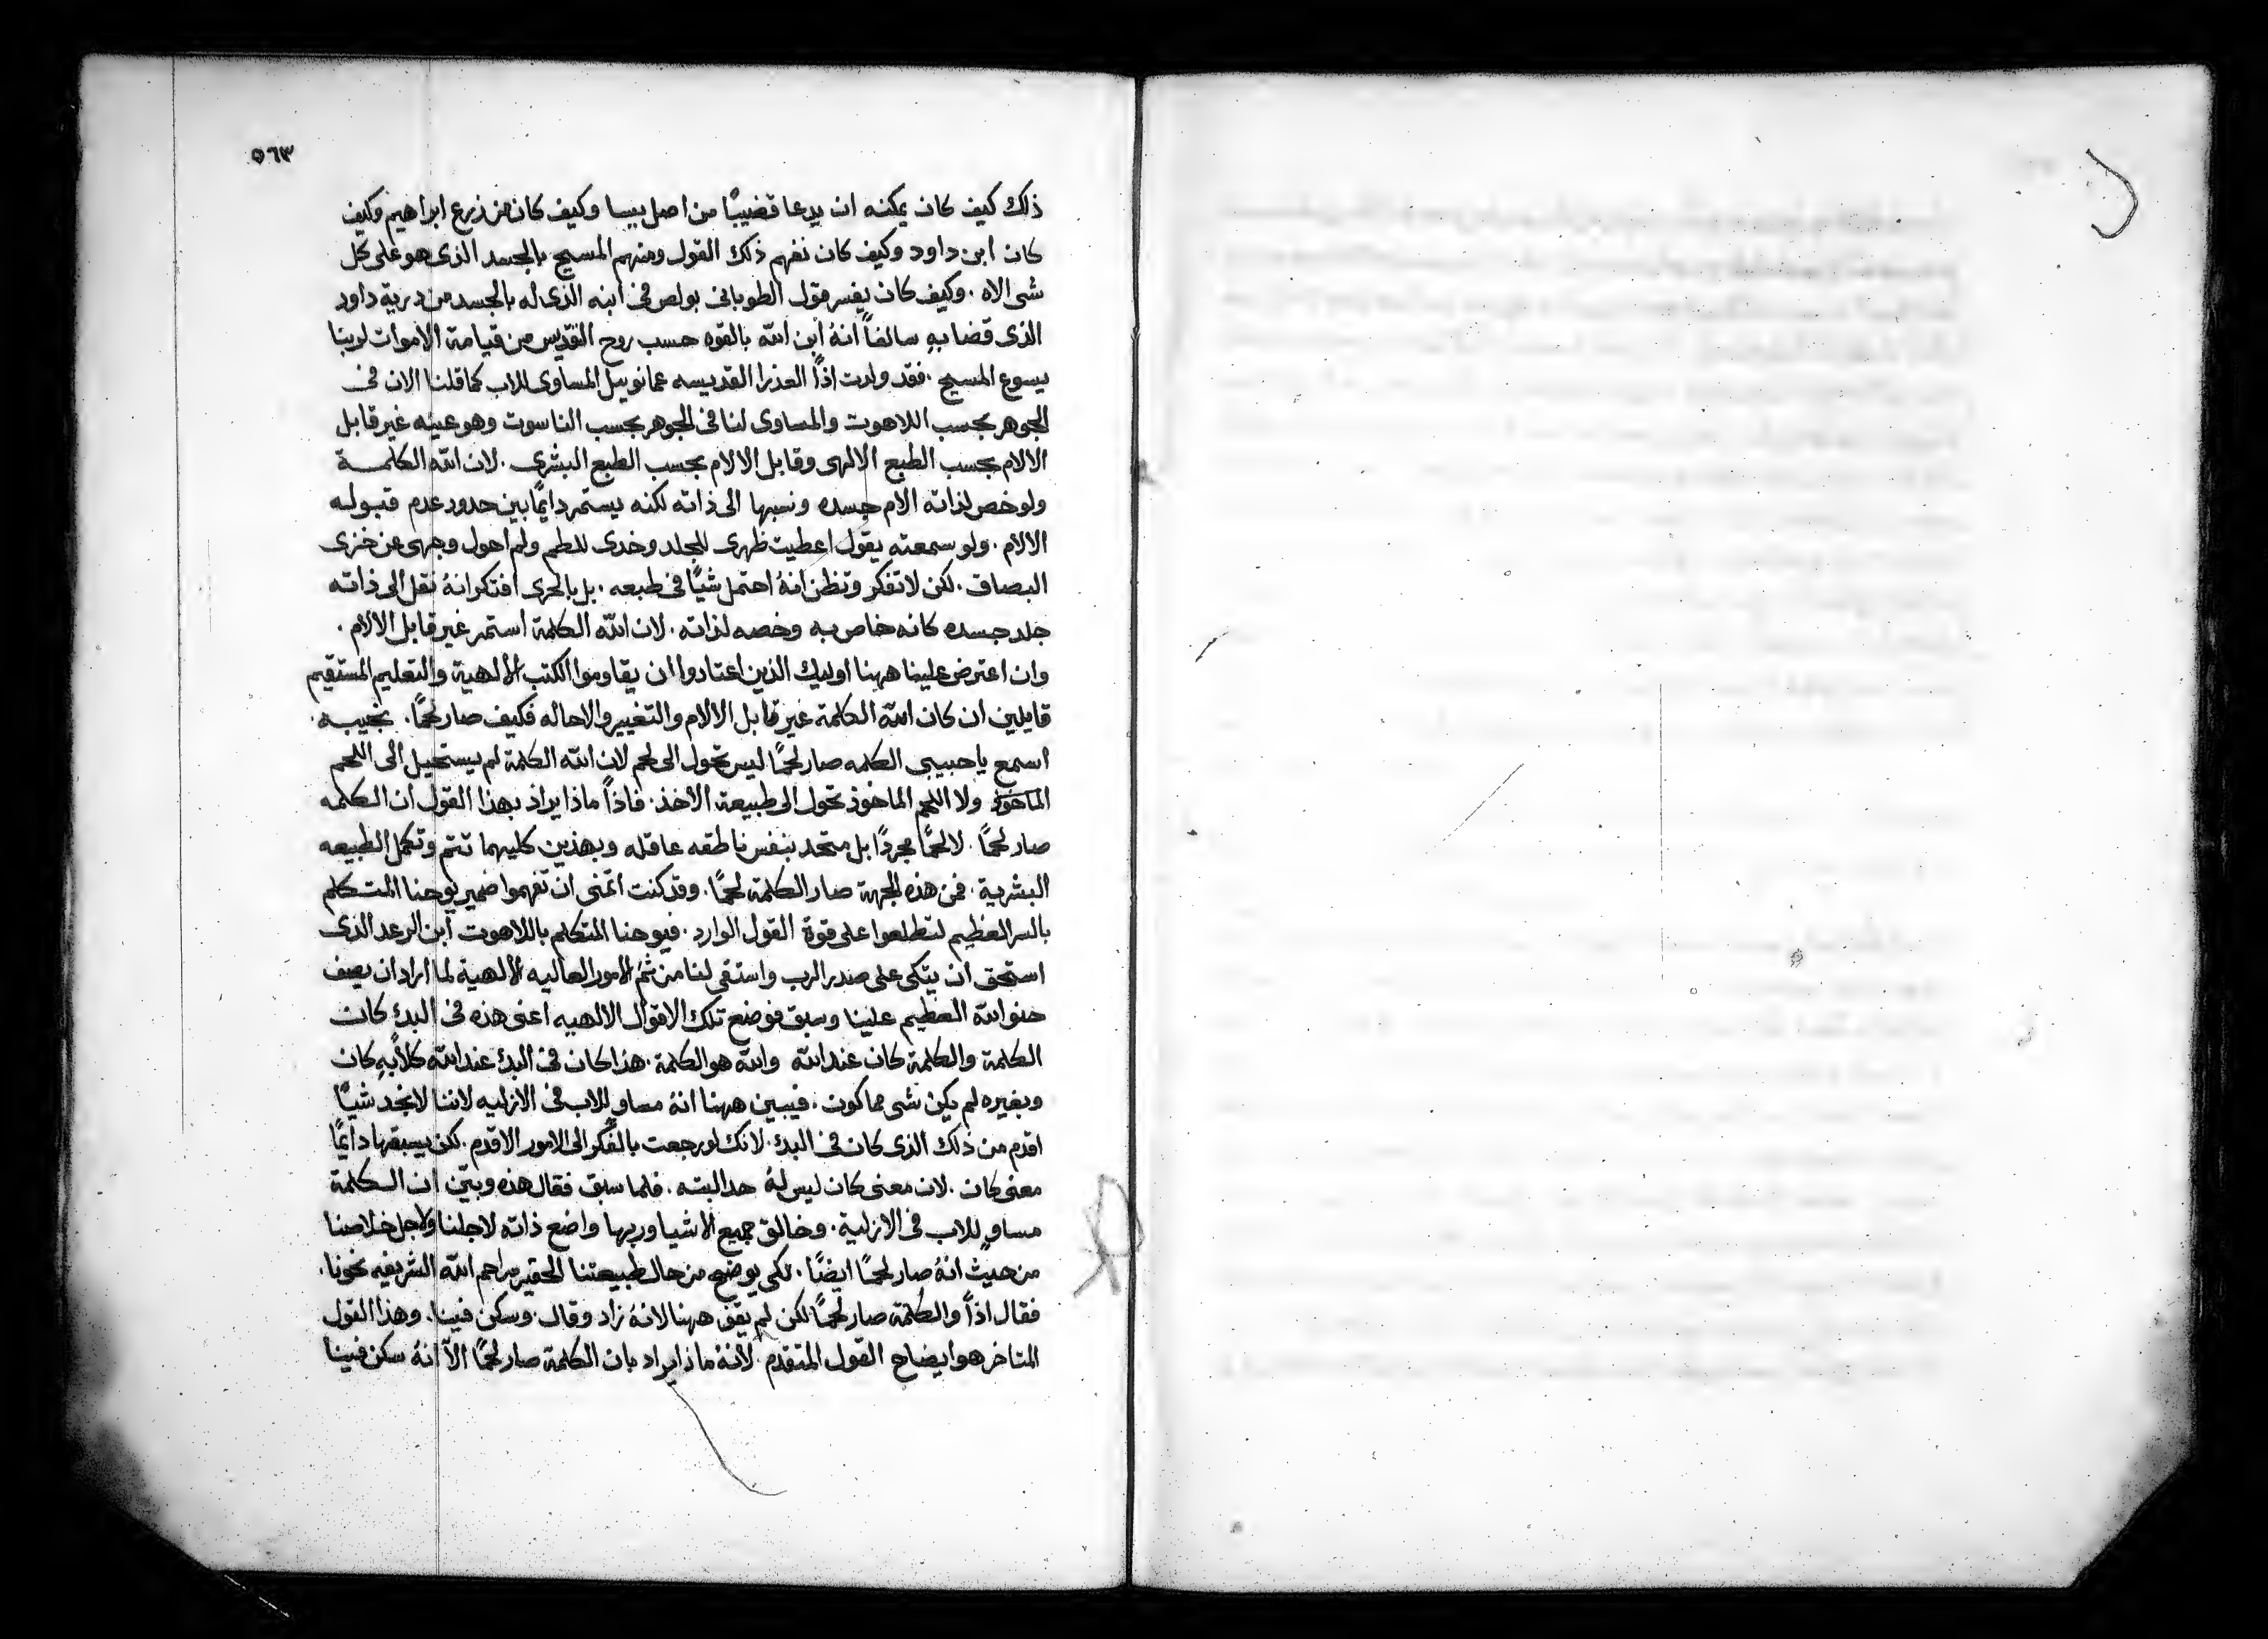 ٥٦٣
ذلك كيف كان يمكنه ان يدعا قضيبًا من اصل يسا وكيف كان من زرع ابراهيم وكيف
كان ابن داود وكيف كان نفهم ذلك القول ومنهم المسيح بالجسد الذى هو على كل
شى الاه . وكيف كان يفسر قول الطوبانى بولص فى ابنه الذى له بالجسد من درية داود
الذى قضا به سالفاً انهُ ابن الله بالقوه حسب روح القدّيس من قيامة الاموات لربنا
يسوع المسيح . فقد ولدت اذاً العذرا القديسه عمانوييل المساوى للاب كما قلنا الان فى
الجوهر بحسب اللاهوت والمساوى لنا فى الجوهر بحسب الناسوت وهو عينه غير قابل
الالام بحسب الطبع الالهى وقابل الالام بحسب الطبع البشرى . لان الله الكلمة
ولو خص لذاته الام جسده ونسبها الى ذاته لكنه يستمر دايمًا بين حدود عدم قبوله
الالام . ولو سمعته يقول اعطيت ظهرى للجلد وخدى للطم ولم احول وجهى عن خزى
البصاق . لكن لا تفكر وتظن انهُ احتمل شيًا فى طبعه . بل بالحرى افتكر انهُ نقل الى ذاته
جلد جسده كانه خاص به وخصه لذاته . لان الله الكلمة استمر غير قابل الالام .
وان اعترض علينا ههنا اوليك الذين اعتادوا ان يقاوموا الكتب الالهية والتعليم المستقيم
قايلين ان كان الله الكلمة غير قابل الالام والتغيير والاحاله فكيف صار لحمًا . نجيبه .
اسمع يا حبيبى الكلمه صار لحمًا ليس تحول الى لحم لان الله الكلمة لم يستحيل الى اللحم
الماخوذ ولا اللحم الماخوذ تحول الى طبيعة الاخذ . فاذاً ماذا يراد بهذا القول ان الكلمه
صار لحمًا . لا لحمًا مجردًا بل متحد بنفس ناطقه عاقله وبهذين كليهما تتم وتكمل الطبيعه
البشرية . فمن هذه الجهة صار الكلمة لحمًا . وقد كنت اتمنى ان تفهموا ضمير يوحنا المتكلم
بالسر العظيم لتطلعوا على قوة القول الوارد . فيوحنا المتكلم باللاهوت ابن الرعد الذى
استحق ان يتكى على صدر الرب واستقى لنا من ثمّ الامور العاليه الالهية لما اراد ان يصف
حنو الله العظيم علينا وسبق فوضع تلك الاقوال الالهيه اعنى هذه فى البدء كان
الكلمة والكلمة كان عند الله والله هو الكلمة . هذا كان فى البدء عند الله كلاً به كان
وبغيره لم يكن شى مما كون . فيبين ههنا انهُ مساوٍ للاب فى الازليه لاننا لا نجد شيًا
اقدم من ذلك الذى كان فى البدء . لانك لو رجعت بالفكر الى الامور الاقدم . لكن يسبقها دايمًا
معنى كان . لان معنى كان ليس لهُ حد البته . فلما سبق فقال هذه وبيّن ان الكلمة
مساوٍ للاب فى الازلية . وخالق جميع الاشيا وربها واضع ذاته لاجلنا ولاجل خلاصنا
من حيث انهُ صار لحمًا ايضًا . لكى يوضح من حال طبيعتنا الحقير مراحم الله الشريفه نحونا .
فقال اذاً والكلمة صار لحمًا لكن لم يقف ههنا لانهُ زاد وقال وسكن فينا . وهذا القول
المتاخر هو ايضاح القول المتقدم . لانهُ ماذا يراد بان الكلمة صار لحمًا الاّ انهُ سكن فينا